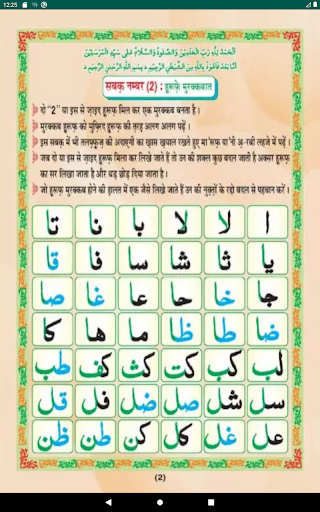 12:25
اَلْحَمْدُ لِلّٰهِ رَبِّ الْعٰلَمِيْنَ وَالصَّلٰوةُ وَالسَّلَامُ عَلٰى سَيِّدِ الْمُرْسَلِيْنَ
اَمَّا بَعْدُ فَاَعُوْذُ بِاللّٰهِ مِنَ الشَّيْطٰنِ الرَّجِيْمِ ؕ بِسْمِ اللّٰهِ الرَّحْمٰنِ الرَّحِيْمِ ؕ
सबक़ नम्बर (2) : हुरूफ़े मुरक्कबात
दो "2" या इस से ज़ाइद हुरूफ़ मिल कर एक मुरक्कब बनता है।
मुरक्कब हुरूफ़ को मुफ़्रिद हुरूफ़ की तरह अलग अलग पढ़ें।
इस सबक़ में भी तलफ़्फ़ुज़ की अदाएगी का ख़ास ख़याल रखते हुए मा'रूफ़ या'नी अ़-रबी लहजे में पढ़ें।
जब दो या इस से ज़ाइद हुरूफ़ मिला कर लिखे जाते हैं तो उन की शक्ल कुछ बदल जाती है अक्सर हुरूफ़
का सर लिखा जाता है और धड़ छोड़ दिया जाता है।
जो हुरूफ़ मुरक्कब होने की हालत में एक जैसे लिखे जाते हैं उन की नुक़्तों के रद्दो बदल से पहचान करें।
ا لا لا با نا تا
یا ثا شا سا فا قا
جا خا حا عا غا صا
ضا طا ظا ما ها كا
لب كب كت كث كف طب
سل شل صل ضل فل قل
عل غل كل كن طن ظن
(2)